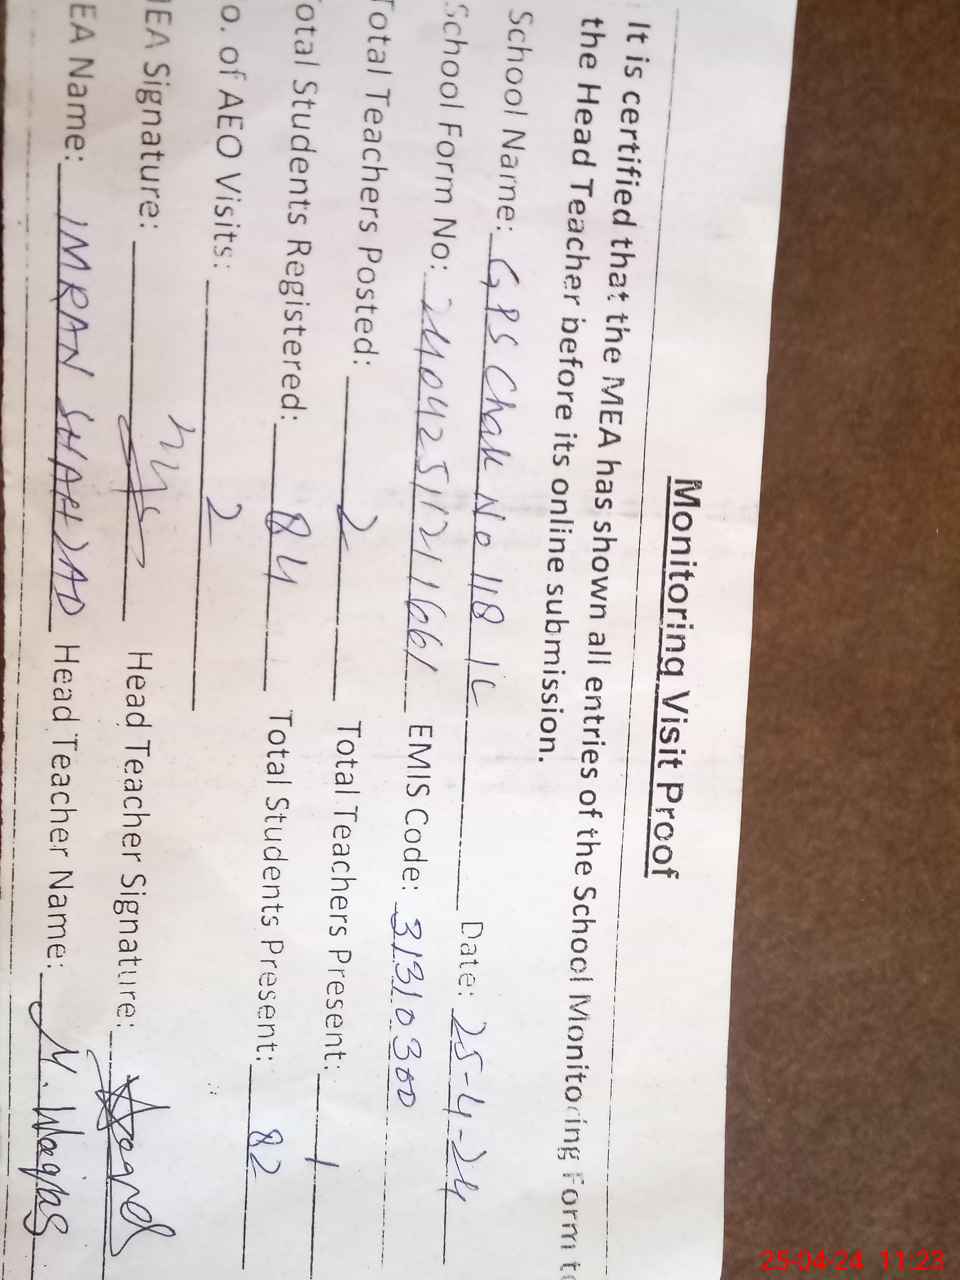 Monitoring Visit Proof
It is certified that the MEA has shown all entries of the School Monitoring Form to
the Head Teacher before its online submission.
School Name: GPS Chak No 118 1L Date: 25-4-24
School Form No: 24042511211661 EMIS Code: 31310300
Total Teachers Posted: 2 Total Teachers Present: 1
otal Students Registered: 84 Total Students Present: 82
o. of AEO Visits: 2
EA Signature: Head Teacher Signature:
EA Name: IMRAN SHAHZAD Head Teacher Name: M. Waqas
25-04-24 11:23